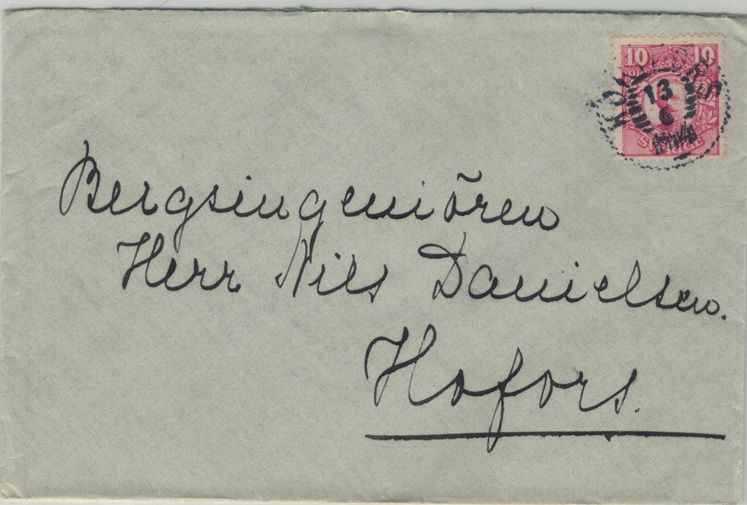 10 10
13
6
SVERIGE
Bergsingeniören
Herr Nils Danielsen.
Hofors.